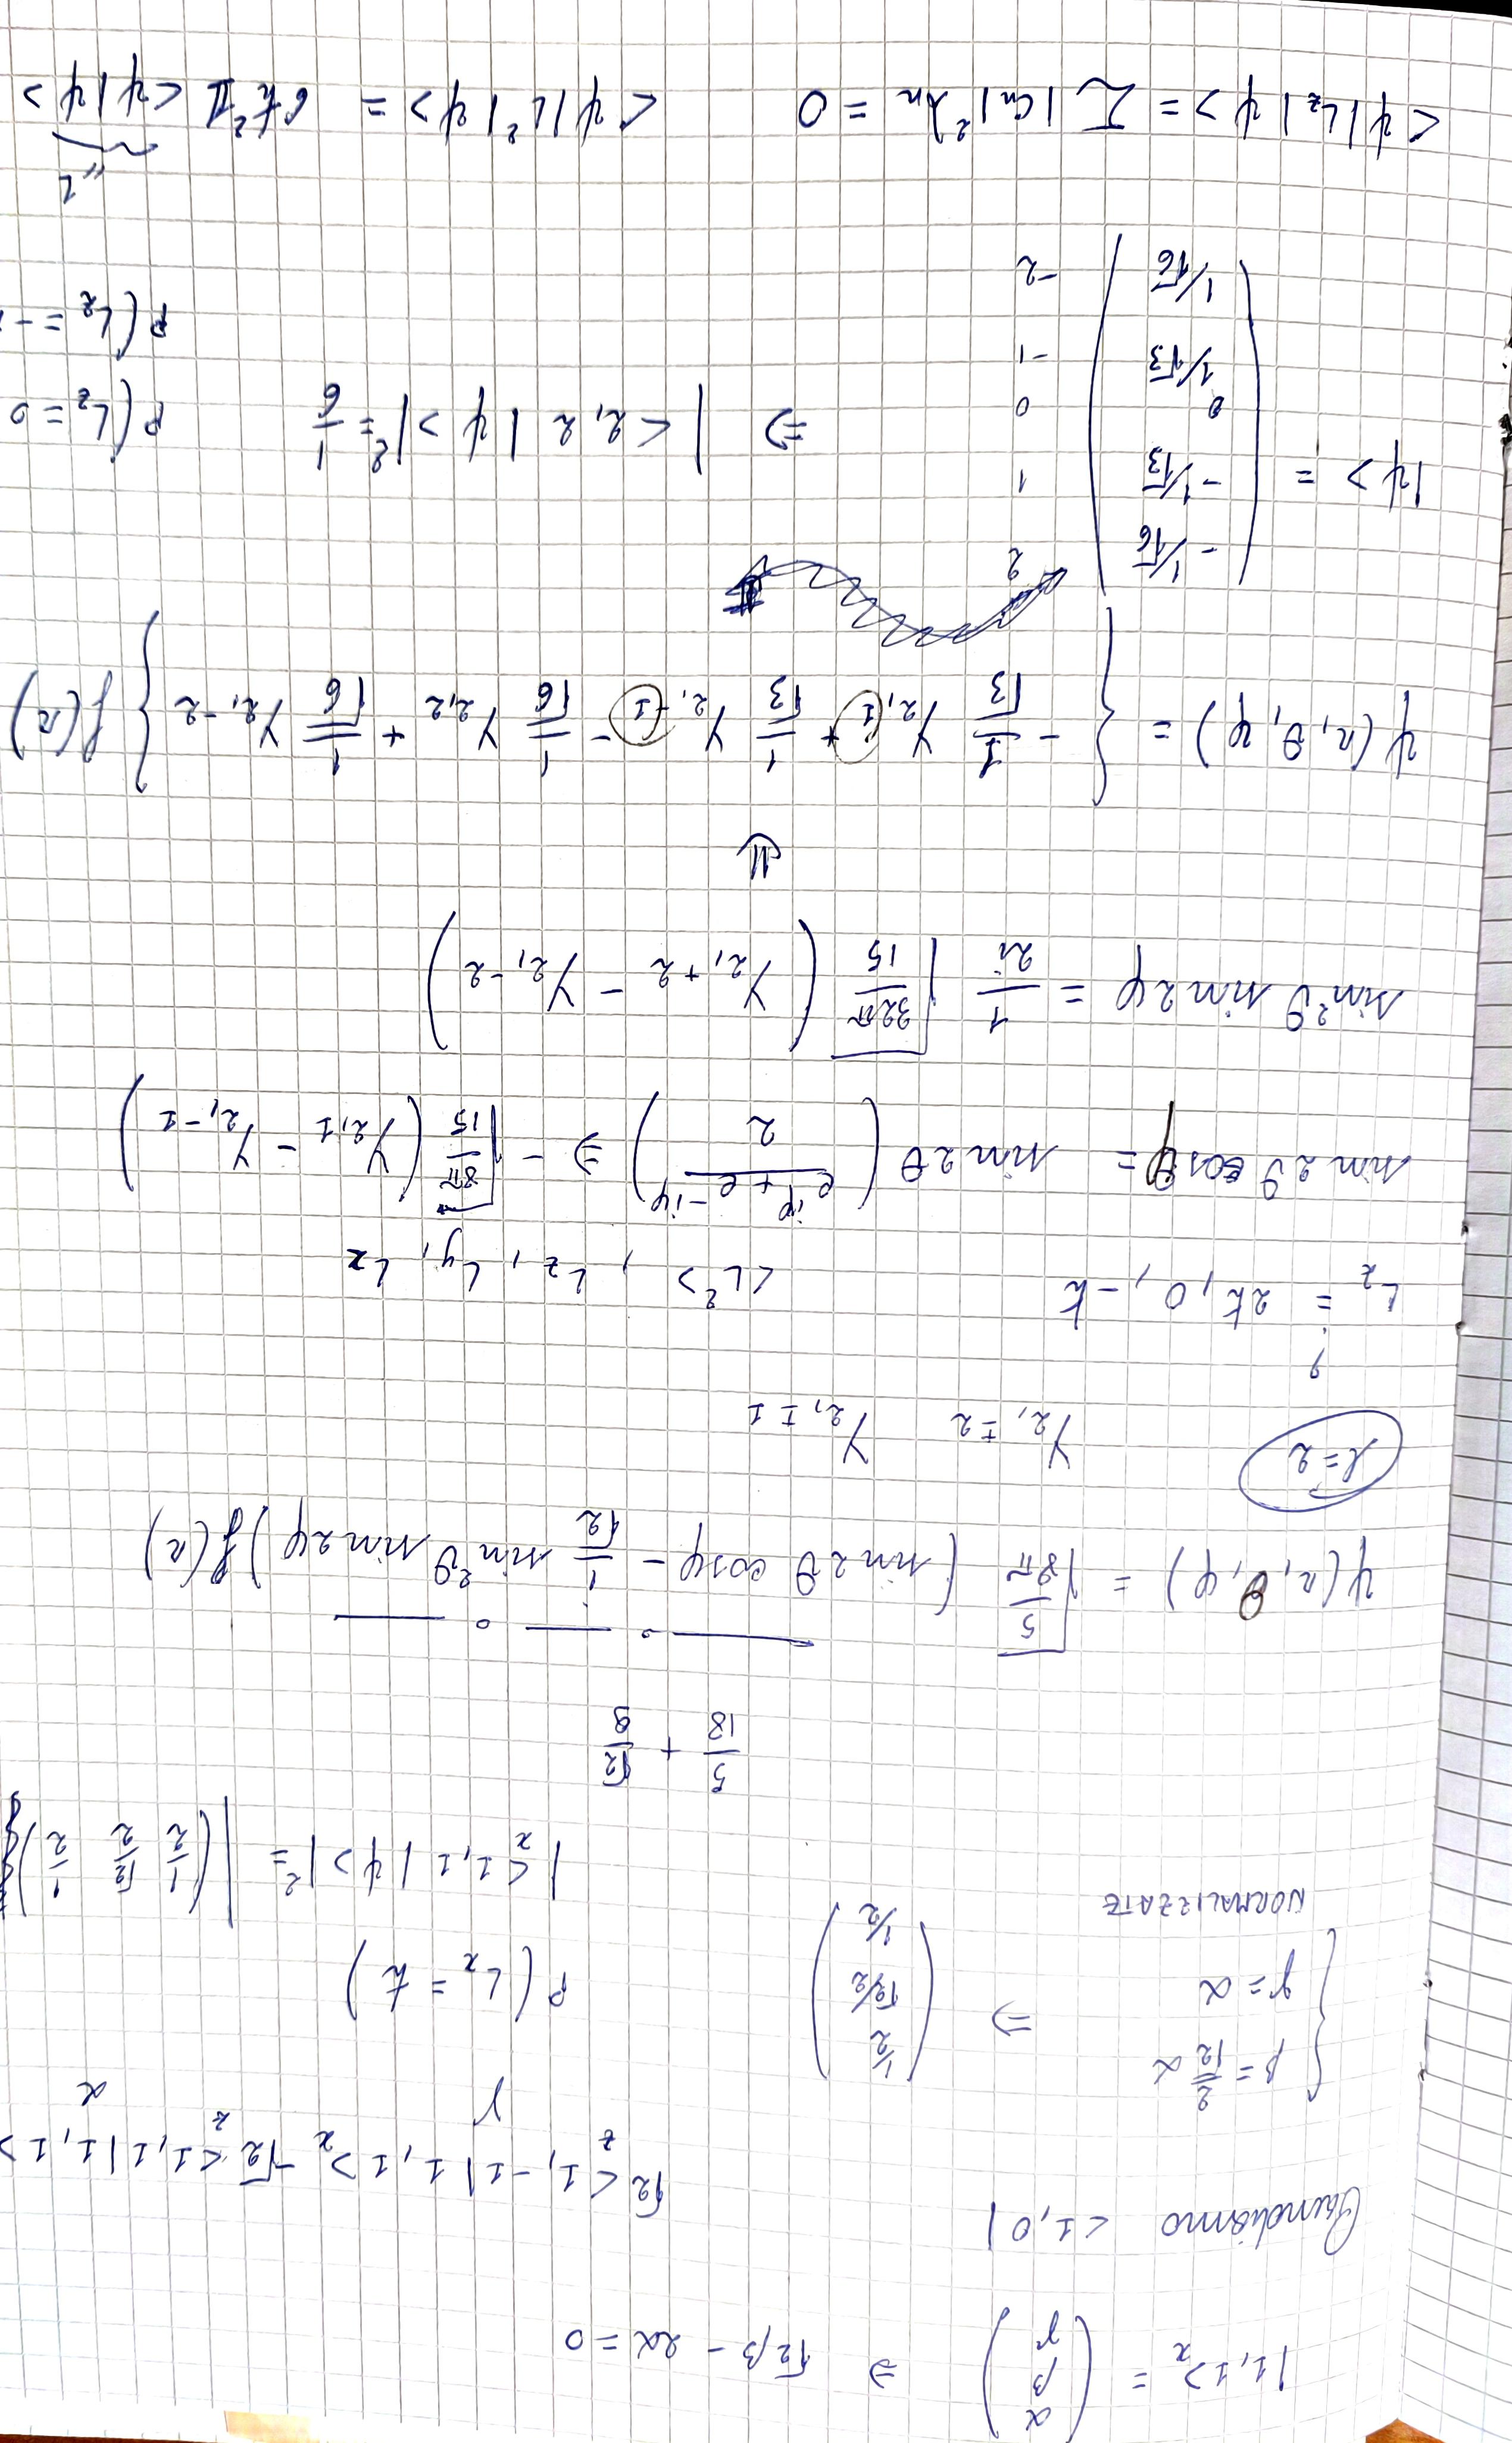 |1,1>_x = (α β γ) ⇒ √2β - 2α = 0
Prendiamo <1,0|
√2 _z<1,-1|1,1>_x - √2 _z<1,1|1,1>
γ α
{ β = 2/√2 α
γ = α
⇒ (1/2 √2/2 1/2)
NORMALIZZATE
P(L_x = ħ)
|_x<1,1|ψ>|² = |(1/2 √2/2 1/2)
5/18 + √2/9
ψ(r,θ,φ) = √(5/8π) (sin2θ cosφ - 1/√2 sin²θ sin2φ) f(r)
l=2 Y_2,±2 Y_2,±1
?
L_z = 2ħ, 0, -ħ <L²>, L_z, L_y, L_x
sin2θ cosφ = sin2θ ((e^iφ + e^-iφ)/2) ⇒ -√(8π/15) (Y_2,1 - Y_2,-1)
sin²θ sin2φ = 1/2i √(32π/15) (Y_2,+2 - Y_2,-2)
⇓
ψ(r,θ,φ) = { -1/√3 Y_2,1 + 1/√3 Y_2,-1 - 1/√6 Y_2,2 + 1/√6 Y_2,-2 } f(r)
-1/√6 2
|ψ> = -1/√3 1 ⇒ |<2,2|ψ>|² = 1/6
0 0 P(L_z = 0
1/√3 -1
P(L_z = -
1/√6 -2
"1
<ψ|L_z|ψ> = Σ |c_n|² λ_n = 0 <ψ|L²|ψ> = 6ħ² 𝟙 <ψ|ψ>